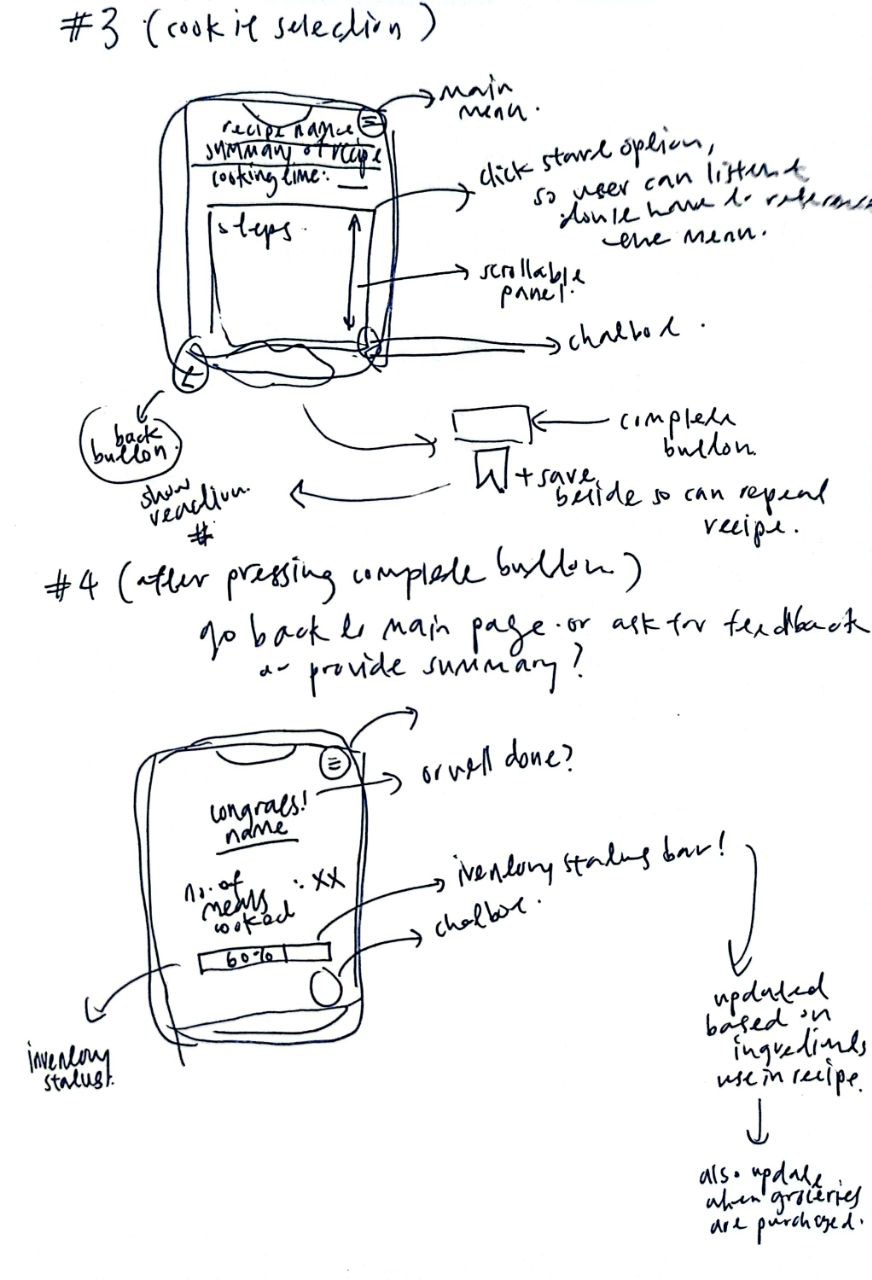 #3 (cook it selection)
main
menu.
recipe name
summary of recipe
cooking time: __
click start option,
so user can listen &
don't have to reference
the menu.
steps.
scrollable
panel.
chatbox.
back
button.
complete
button.
+ save
beside so can repeat
recipe.
show
reaction.
#
#4 (after pressing complete button)
go back to main page or ask for feedback
or provide summary?
or well done?
congrats!
name
no. of
meals
cooked
: XX
iventory status bar!
60%
chatbox.
inventory
status.
updated
based on
ingredients
use in recipe.
also update
when groceries
are purchased.